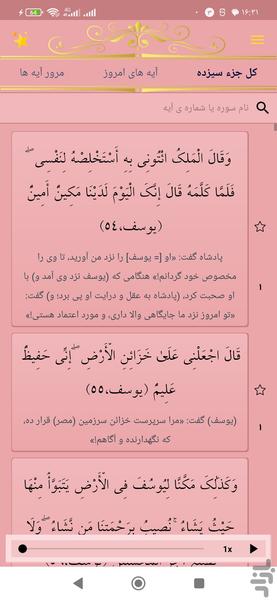 ۱۶:۳۱
64
کل جزء سیزده
آیه های امروز
مرور آیه ها
نام سوره یا شماره ی آیه
وَقَالَ الْمَلِكُ ائْتُونِي بِهِ أَسْتَخْلِصْهُ لِنَفْسِي ۖ
فَلَمَّا كَلَّمَهُ قَالَ إِنَّكَ الْيَوْمَ لَدَيْنَا مَكِينٌ أَمِينٌ
(یوسف،٥٤)
پادشاه گفت: «او [= یوسف] را نزد من آورید، تا وی را
مخصوص خود گردانم!» هنگامی که (یوسف نزد وی آمد و) با
او صحبت کرد، (پادشاه به عقل و درایت او پی برد؛ و) گفت:
«تو امروز نزد ما جایگاهی والا داری، و مورد اعتماد هستی!»
۱
قَالَ اجْعَلْنِي عَلَىٰ خَزَائِنِ الْأَرْضِ ۖ إِنِّي حَفِيظٌ
عَلِيمٌ (یوسف،٥٥)
(یوسف) گفت: «مرا سرپرست خزائن سرزمین (مصر) قرار ده،
که نگهدارنده و آگاهم!»
۱
وَكَذَٰلِكَ مَكَّنَّا لِيُوسُفَ فِي الْأَرْضِ يَتَبَوَّأُ مِنْهَا
حَيْثُ يَشَاءُ ۚ نُصِيبُ بِرَحْمَتِنَا مَن نَّشَاءُ ۖ وَلَا
1x
بازار